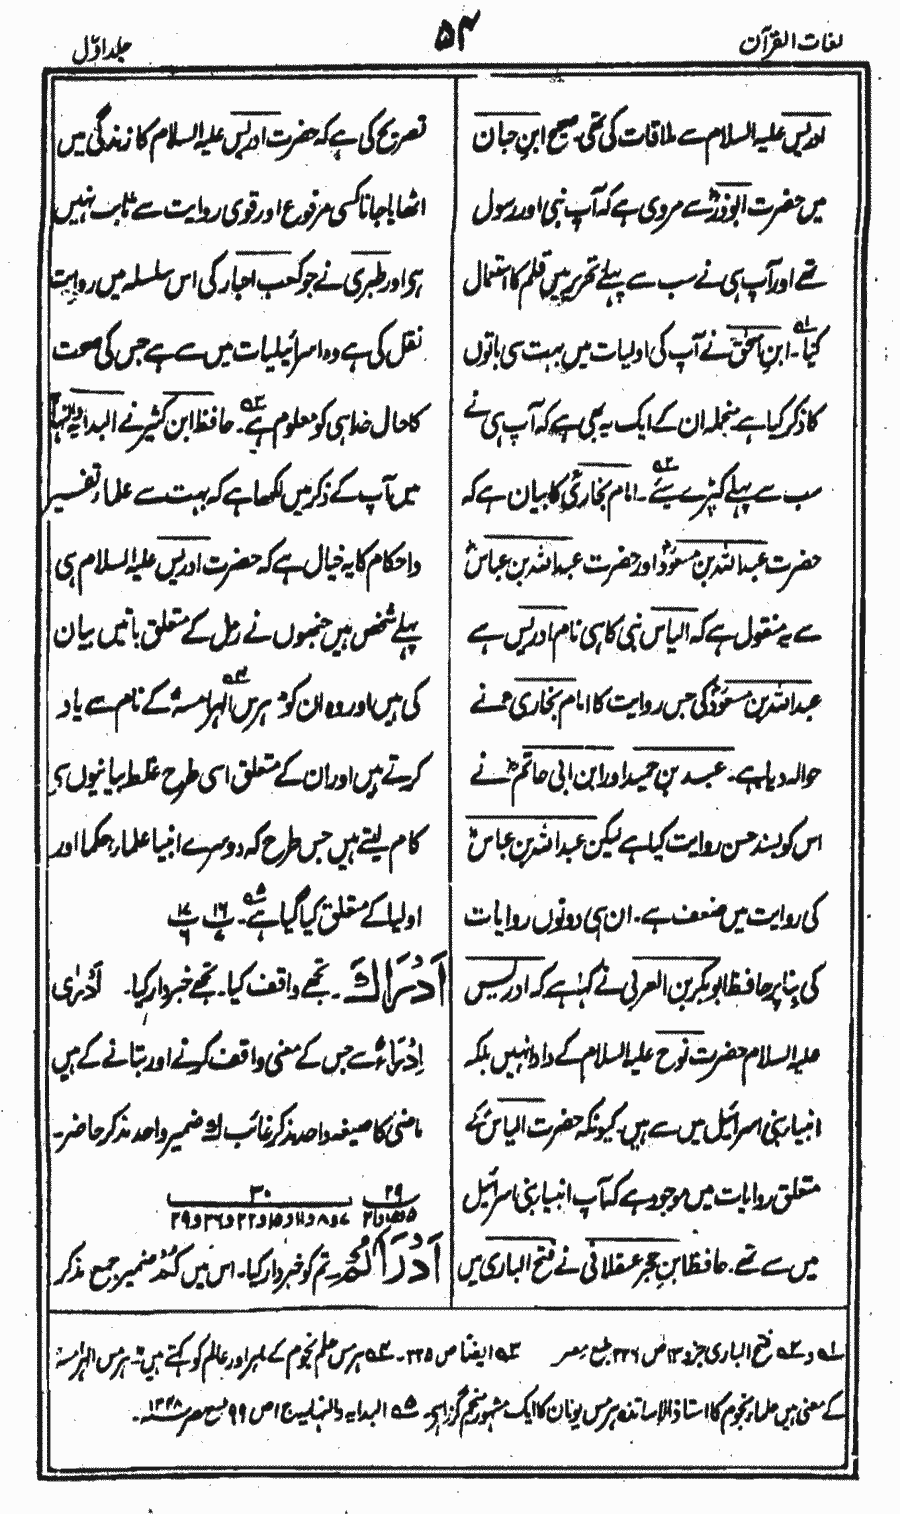 لغات القرآن
۵۴
جلد اوّل
ادریس علیہ السلام سے ملاقات کی تھی۔ صحیح ابن حبان
میں حضرت ابوذرؓ سے مروی ہے کہ آپ نبی اور رسول
تھے اور آپ ہی نے سب سے پہلے تحریر میں قلم کا استعمال
کیا۔ ابن اسحٰق نے آپ کی اولیات میں بہت سی باتوں
کا ذکر کیا ہے منجملہ ان کے ایک یہ بھی ہے کہ آپ ہی نے
سب سے پہلے کپڑے سیئے۔ امام بخاریؒ کا بیان ہے کہ
حضرت عبداللہ بن مسعودؓ اور حضرت عبداللہ بن عباسؓ
سے یہ منقول ہے کہ الیاس نبی کا ہی نام ادریس ہے
عبداللہ بن مسعودؓ کی جس روایت کا امام بخاریؒ نے
حوالہ دیا ہے۔ عبد بن حمید اور ابن ابی حاتمؒ نے
اس کو بسند حسن روایت کیا ہے لیکن عبداللہ بن عباسؓ
کی روایت میں ضعف ہے۔ ان ہی دونوں روایات
کی بنا پر حافظ ابوبکر بن العربی نے کہا ہے کہ ادریس
علیہ السلام حضرت نوح علیہ السلام کے دادا نہیں بلکہ
انبیاء بنی اسرائیل میں سے ہیں۔ کیونکہ حضرت الیاس کے
متعلق روایات میں موجود ہے کہ آپ انبیاء بنی اسرائیل
میں سے تھے۔ حافظ ابن حجر عسقلانی نے فتح الباری میں
تصریح کی ہے کہ حضرت ادریس علیہ السلام کا زندگی میں
اٹھایا جانا کسی مرفوع اور قوی روایت سے ثابت نہیں
ہے اور طبری نے جو کعب احبار کی اس سلسلہ میں روایت
نقل کی ہے وہ اسرائیلیات میں سے ہے جس کی صحت
کا حال خدا ہی کو معلوم ہے۔ حافظ ابن کثیر نے البدایہ والنہایہ
میں آپ کے ذکر میں لکھا ہے کہ بہت سے علماء تفسیر
و احکام کا یہ خیال ہے کہ حضرت ادریس علیہ السلام ہی
پہلے شخص ہیں جنہوں نے رمل کے متعلق باتیں بیان
کی ہیں اور وہ ان کو ہرمس الہرامسہ کے نام سے یاد
کرتے ہیں اور ان کے متعلق اسی طرح غلط بیانیوں سے
کام لیتے ہیں جس طرح کہ دوسرے انبیا علماء، حکما اور
اولیا کے متعلق کیا گیا ہے۔ پ ۱۶ پ ۱۷
اَدْرَاكَ۔ تجھے واقف کیا۔ تجھے خبردار کیا۔ اَدْرٰى
اِدْرَاءٌ سے جس کے معنی واقف کرنے اور بتانے کے ہیں
ماضی کا صیغہ واحد مذکر غائب ك ضمیر واحد مذکر حاضر۔
۲۹ ۳۰
اَدْرَاكُمْ۔ تم کو خبردار کیا۔ اس میں كُمْ ضمیر جمع مذکر
۱؎ و ۲؎ فتح الباری جزو ۱۳ ص ۲۲۶ طبع مصر ۳؎ ایضًا ص ۲۲۵۔ ۴؎ ہرمس علم نجوم کے ماہر اور عالم کو کہتے ہیں۔ ہرمس الہرامسہ
کے معنی ہیں علماء نجوم کا استاذ الاساتذہ ہرمس یونان کا ایک مشہور منجم گزرا ہے۔ ۵؎ البدایہ والنہایہ ج ۱ ص ۹۹ طبع مصر ۱۳۴۸۔